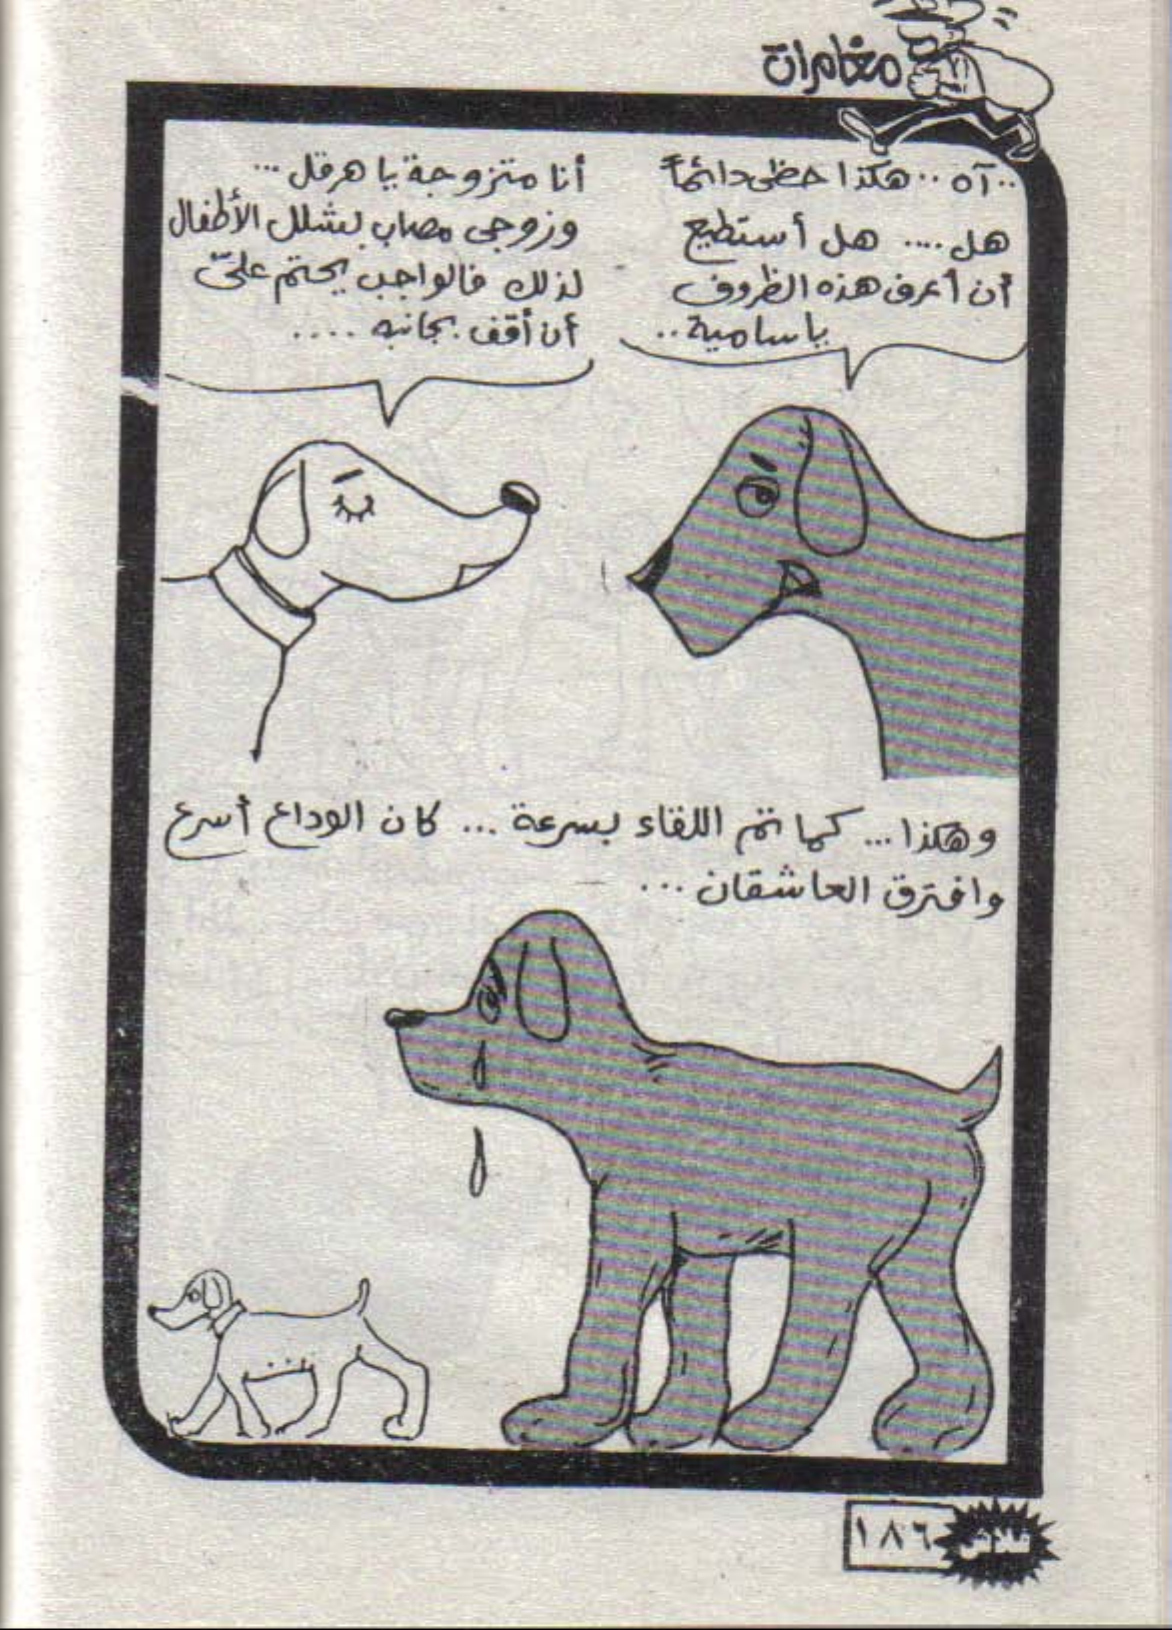 مغامرات
..آه ..هكذا حظى دائماً
هل .... هل أستطيع
أن أعرف هذه الظروف
ياسامية..
أنا متزوجة يا هرقل ...
وزوجى مصاب بشلل الأطفال
لذلك فالواجب يحتم علىّ
أن أقف بجانبه ....
وهكذا ... كما تم اللقاء بسرعة ... كان الوداع أسرع
وافترق العاشقان ...
فلاش
١٨٦